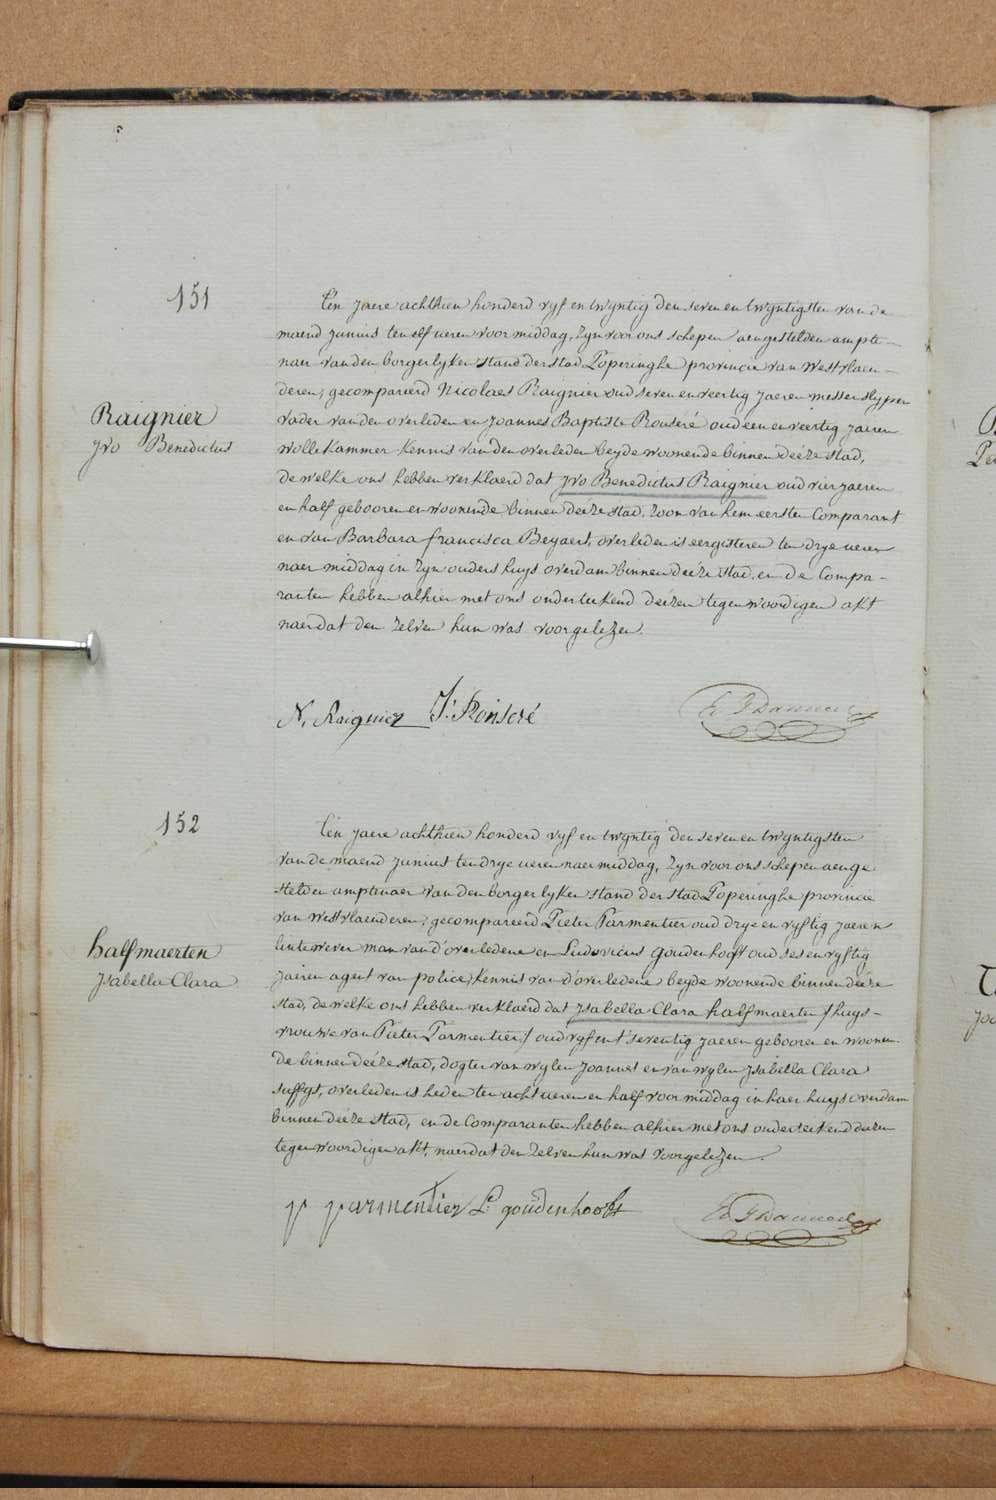 151
Raignier
Jvo Benedictus
Ten jaere achthien honderd vyf en twyntig den seven en twyntigsten van de
maend junius ten elf ueren voor middag, Zyn voor ons schepen aengestelden ampte-
naer van den borgerlyken stand der stad Poperinghe provincie van Westvlaen-
deren; gecompareerd Nicolaes Raignier oud seven en veertig jaeren messerslyper
vader van den overleden en Joannes Baptiste Ronseré oud een en veertig jaeren
wollekammer kennis van den overleden beyde woonende binnen deéze stad,
de welke ons hebben verklaerd dat Jvo Benedictus Raignier oud vier jaeren
en half gebooren en woonende binnen deéze stad, Zoon van hem eersten Comparant
en van Barbara francisca Beyaert, overleden is eergisteren ten drye ueren
naer middag in Zyn ouders huys overdam binnen deéze stad, en de Compa-
ranten hebben alhier met ons onderteekend deézen tegenwoordigen akt
naer dat den Zelven hun was voorgelezen.
N, Raignier J: Ronseré
152
halfmaerten
Jsabella Clara
Ten jaere achthien honderd vyf en twyntig den seven en twyntigsten
van de maend junius ten drye ueren naer middag, Zyn voor ons schepen aenge
stelden amptenaer van den borgerlyken stand der stad Poperinghe provincie
van Westvlaenderen; gecompareerd Pieter Parmentier oud drye en vyftig jaeren
lintwever man van d'overledene en Ludovicus Goudenhooft oud ses en vyftig
jaeren agent van police, kennis van d'overledene beyde woonende binnen deéze
stad, de welke ons hebben verklaerd dat Jsabella Clara halfmaerten /huys-
vrouwe van Pieter Parmentier/ oud vyf en t'seventig jaeren gebooren en woonen-
de binnen deéze stad, dogter van wylen Joannes en van wylen Jsabella Clara
overleden is heden ten acht ueren en half voor middag in haer huys overdam
binnen deéze stad, en de Comparanten hebben alhier met ons onderteekend deézen
tegenwoordigen akt, naer dat den Zelven hun was voorgelezen.
p parmentier L: goudenhooft